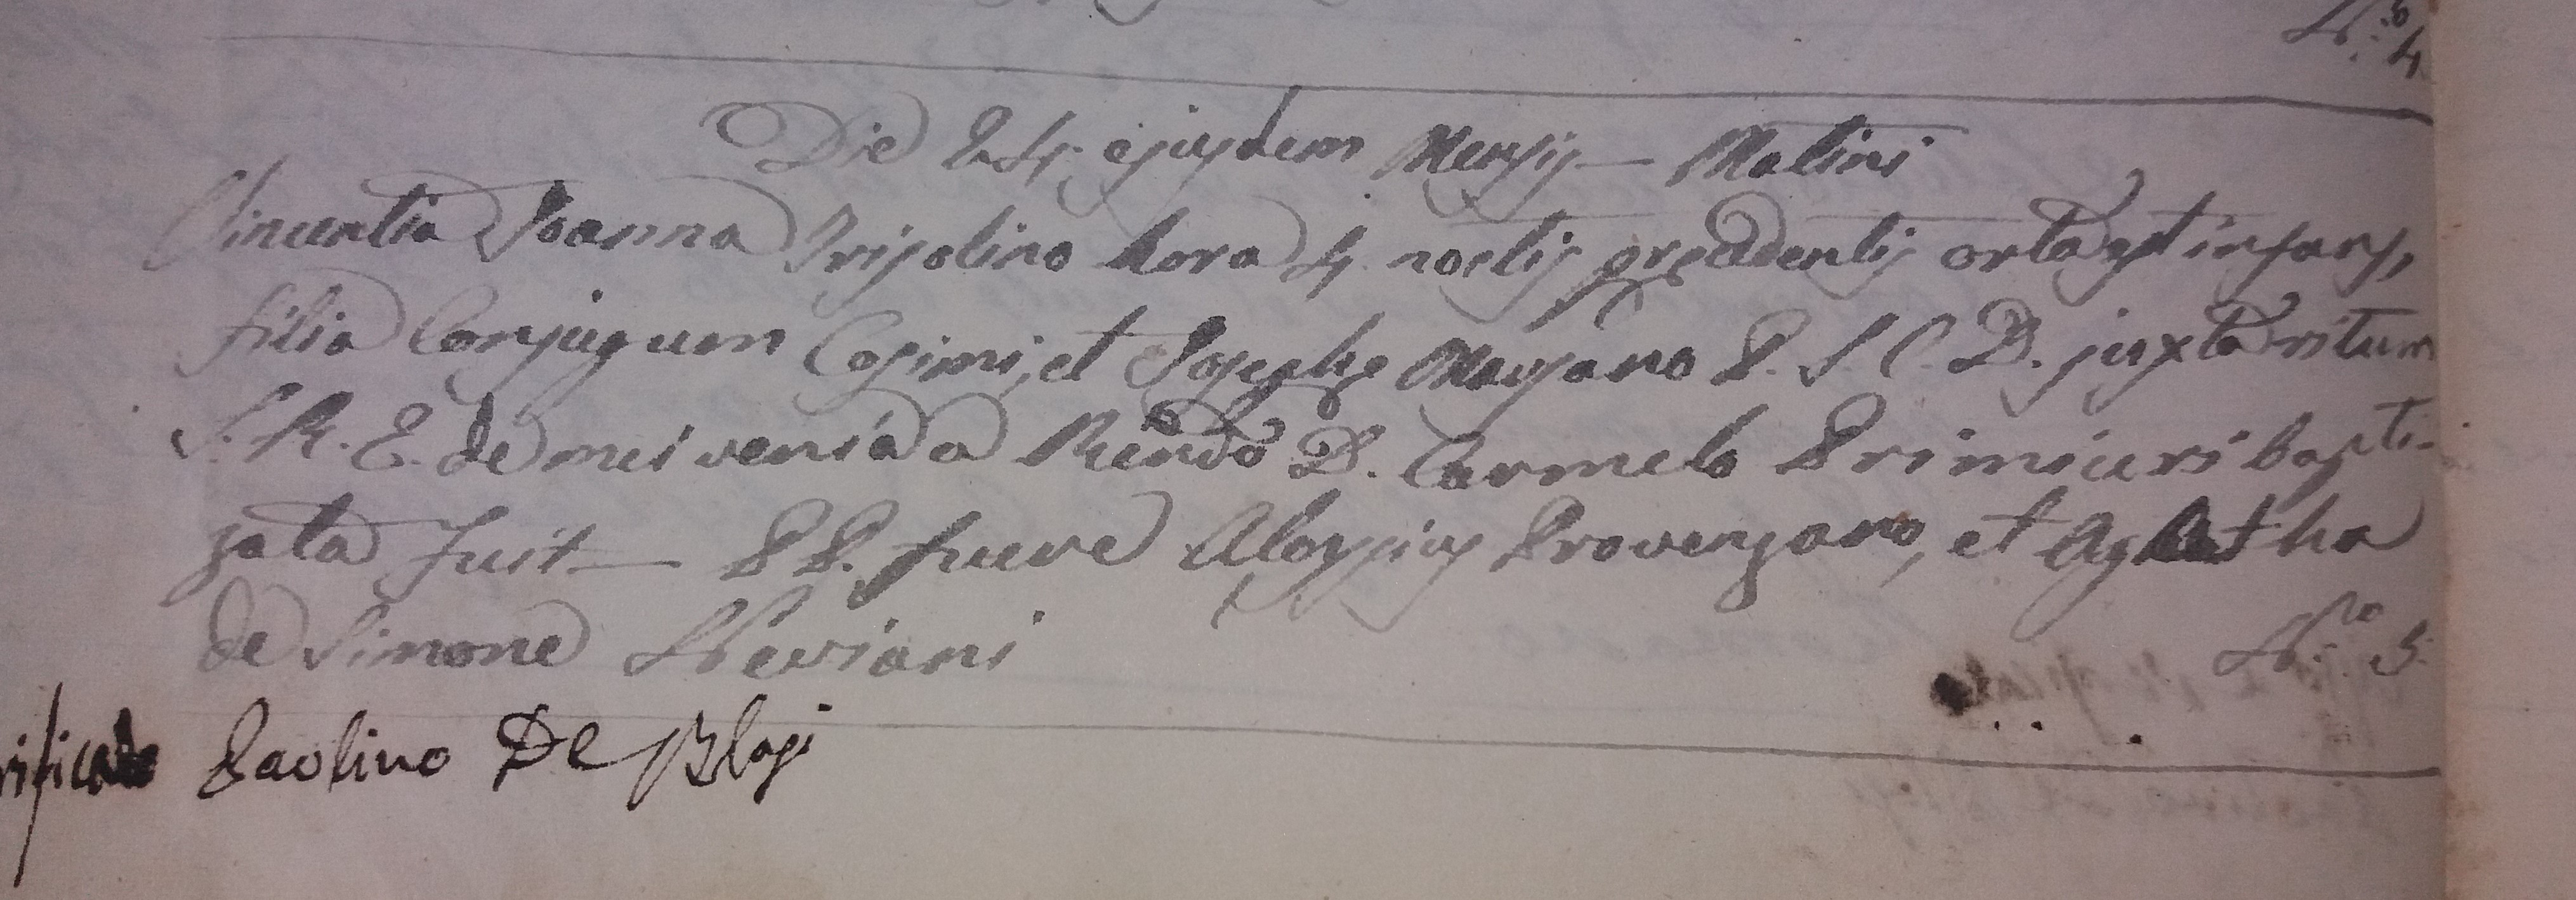 N.o 4
Die 24 ejusdem Mensis — Matini
Vincentia Joanna Grisolino hora 4 noctis præcædentis orta est infans,
filia Conjugum Cosimi, et Josephæ Marsano P. S. C. D. juxta ritum
S. R. E. de mei venia a Rendo D. Carmelo Primiceri bapti-
zata fuit — PP. fuere Aloysius Provenzano, et Agatha
de Simone Neviani
N.ro 5.
Paolino De Blasi